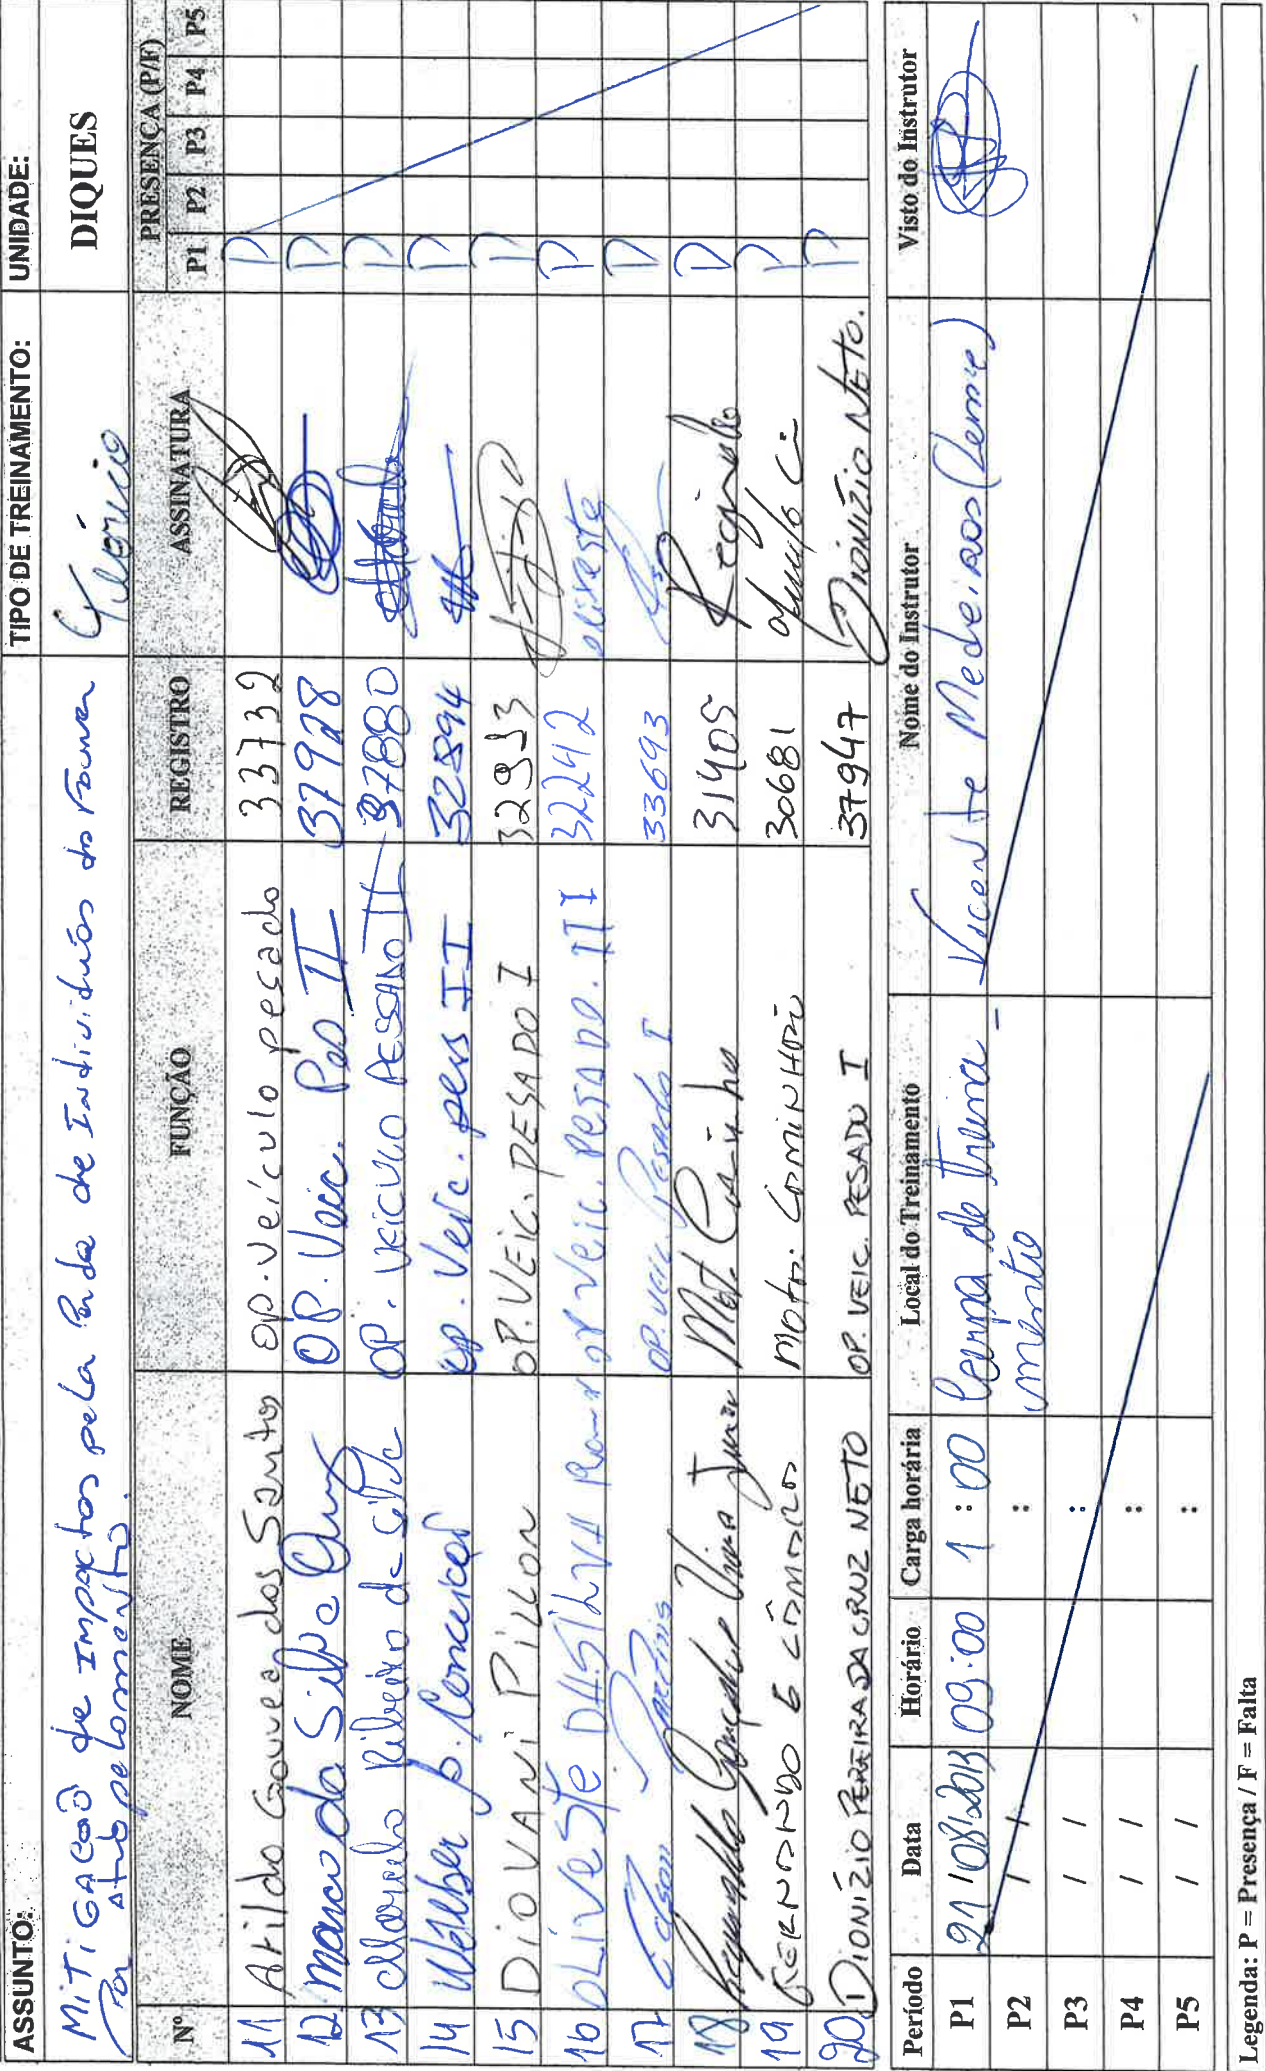 ASSUNTO: TIPO DE TREINAMENTO: UNIDADE:
MiTiGAção de Impactos pela Perda de Indivíduos da Fauna DIQUES
Por Atropelamento.
Nº NOME FUNÇÃO REGISTRO ASSINATURA PRESENÇA (P/F)
P1 P2 P3 P4 P5
11 Atildo Gouvea dos Santos op. veículo pesado 33732 P
12 Marco da Silva OP. Veic. Pes II 37928 P
13 Marcelo Ribeiro da Silva OP. VEICULO PESSADO II 37880 P
14 Weliber p. Conceição op. Veic. pess II 32894 P
15 DiOVANi PiLLON OP. VEIC. PESADO I 32953 P
16 OLiVeSTe DA SiLVA OP Veic. PESADO. III 32242 oliveste P
17 Edson Martins OP. Veic. Pesado I 33693 P
18 Reginaldo Gonçalves Viana Junior Mot. 31405 Reginaldo P
19 30681 P
20 DIONIZIO PEREIRA DA CRUZ NETO OP. VEIC. PESADO I 37947 DIONIZIO NETO. P
Período Data Horário Carga horária Local do Treinamento Nome do Instrutor Visto do Instrutor
P1 21/08/2013 09:00 1:00 Campo de treina Vicente Medeiros (Leme)
P2 / / : mento
P3 / / :
P4 / / :
P5 / / :
Legenda: P = Presença / F = Falta